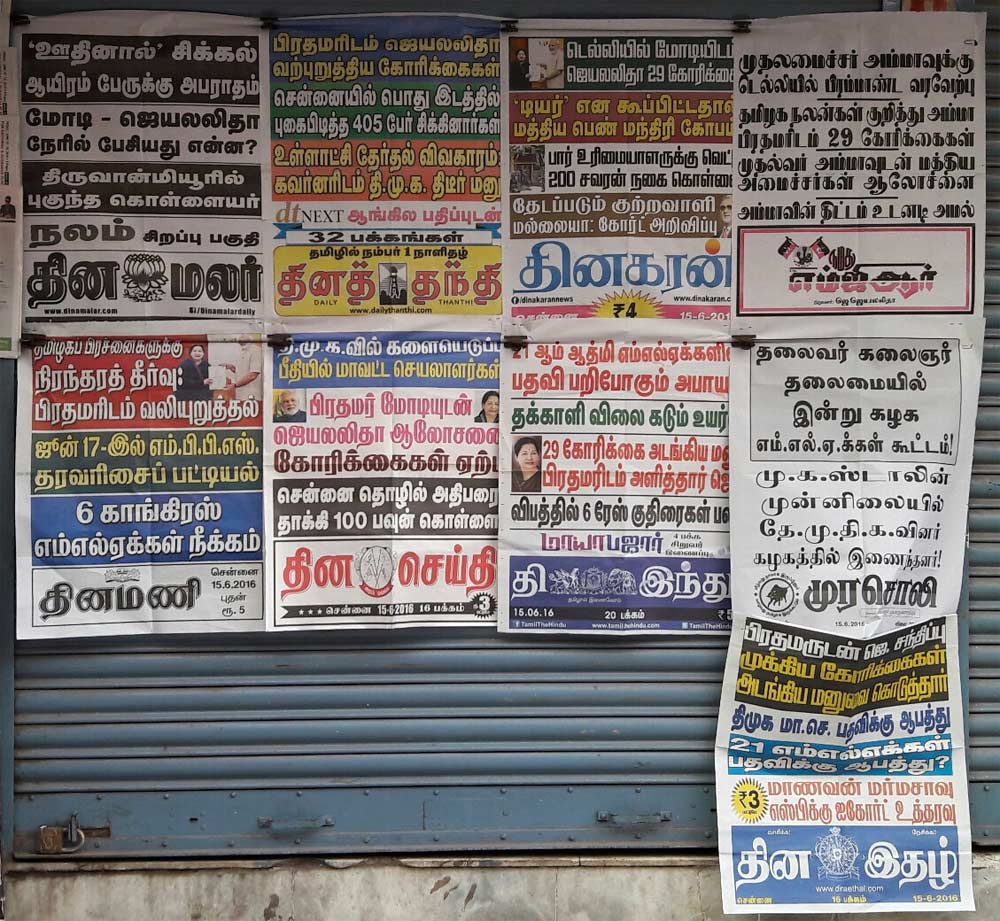 ‘ஊதினால்’ சிக்கல்
ஆயிரம் பேருக்கு அபராதம்
மோடி - ஜெயலலிதா
நேரில் பேசியது என்ன?
திருவான்மியூரில்
புகுந்த கொள்ளையர்
நலம் சிறப்பு பகுதி
தின மலர்
www.dinamalar.com
/Dinamalardaily
பிரதமரிடம் ஜெயலலிதா
வற்புறுத்திய கோரிக்கைகள்
சென்னையில் பொது இடத்தில்
புகைபிடித்த 405 பேர் சிக்கினார்கள்
உள்ளாட்சி தேர்தல் விவகாரம்:
கவர்னரிடம் தி.மு.க. திடீர் மனு
dt NEXT ஆங்கில பதிப்புடன்
32 பக்கங்கள்
தமிழில் நம்பர் 1 நாளிதழ்
தினத் தந்தி
DAILY THANTHI
www.dailythanthi.com
டெல்லியில் மோடியிடம்
ஜெயலலிதா 29 கோரிக்கை
‘டியர்’ என கூப்பிட்டதால்
மத்திய பெண் மந்திரி கோபம்
பார் உரிமையாளருக்கு வெட்
200 சவரன் நகை கொள்ளை
தேடப்படும் குற்றவாளி
மல்லையா: கோர்ட் அறிவிப்பு
தினகரன்
/dinakarannews
www.dinakaran.c
சென்னை ₹4 15-6-201
முதலமைச்சர் அம்மாவுக்கு
டெல்லியில் பிரம்மாண்ட வரவேற்பு
தமிழக நலன்கள் குறித்து அம்மா
பிரதமரிடம் 29 கோரிக்கைகள்
முதல்வர் அம்மாவுடன் மத்திய
அமைச்சர்கள் ஆலோசனை
அம்மாவின் திட்டம் உடனடி அமல்
நமது
எம்ஜிஆர்
நிறுவனர்: ஜெ ஜெயலலிதா
தமிழகப் பிரச்னைகளுக்கு
நிரந்தரத் தீர்வு:
பிரதமரிடம் வலியுறுத்தல்
ஜூன் 17-இல் எம்.பி.பி.எஸ்.
தரவரிசைப் பட்டியல்
6 காங்கிரஸ்
எம்எல்ஏக்கள் நீக்கம்
தினமணி
சென்னை
15.6.2016
புதன்
ரூ. 5
தி.மு.க.வில் களையெடுப்பு
பீதியில் மாவட்ட செயலாளர்கள்
பிரதமர் மோடியுடன்
ஜெயலலிதா ஆலோசனை
கோரிக்கைகள் ஏற்பு
சென்னை தொழில் அதிபரை
தாக்கி 100 பவுன் கொள்ளை
தின செய்தி
சென்னை 15-6-2016 16 பக்கம் ₹3
21 ஆம் ஆத்மி எம்எல்ஏக்களின்
பதவி பறிபோகும் அபாய
தக்காளி விலை கடும் உயர்
29 கோரிக்கை அடங்கிய மனு
பிரதமரிடம் அளித்தார் ஜெ
விபத்தில் 6 ரேஸ் குதிரைகள் பலி
மாயாபஜார் 4 பக்க சிறுவர் இணைப்பு
தி இந்து
15.06.16 20 பக்கம் ₹5
TamilTheHindu www.tamilthehindu.com TamilTheHindu
தலைவர் கலைஞர்
தலைமையில்
இன்று கழக
எம்.எல்.ஏ.க்கள் கூட்டம்!
மு.க.ஸ்டாலின்
முன்னிலையில்
தே.மு.தி.க.வினர்
கழகத்தில் இணைந்தனர்!
முரசொலி
15.6.2016
பிரதமருடன் ஜெ. சந்திப்பு
முக்கிய கோரிக்கைகள்
அடங்கிய மனுவை கொடுத்தார்
திமுக மா.செ. பதவிக்கு ஆபத்து
21 எம்எல்எக்கள்
பதவிக்கு ஆபத்து?
₹3
மாணவன் மர்மசாவு
எஸ்பிக்கு ஐகோர்ட் உத்தரவு
வாசிக்க! நேசிக்க!
தின இதழ்
www.dinaethal.com
சென்னை 16 பக்கம் 15-6-2016